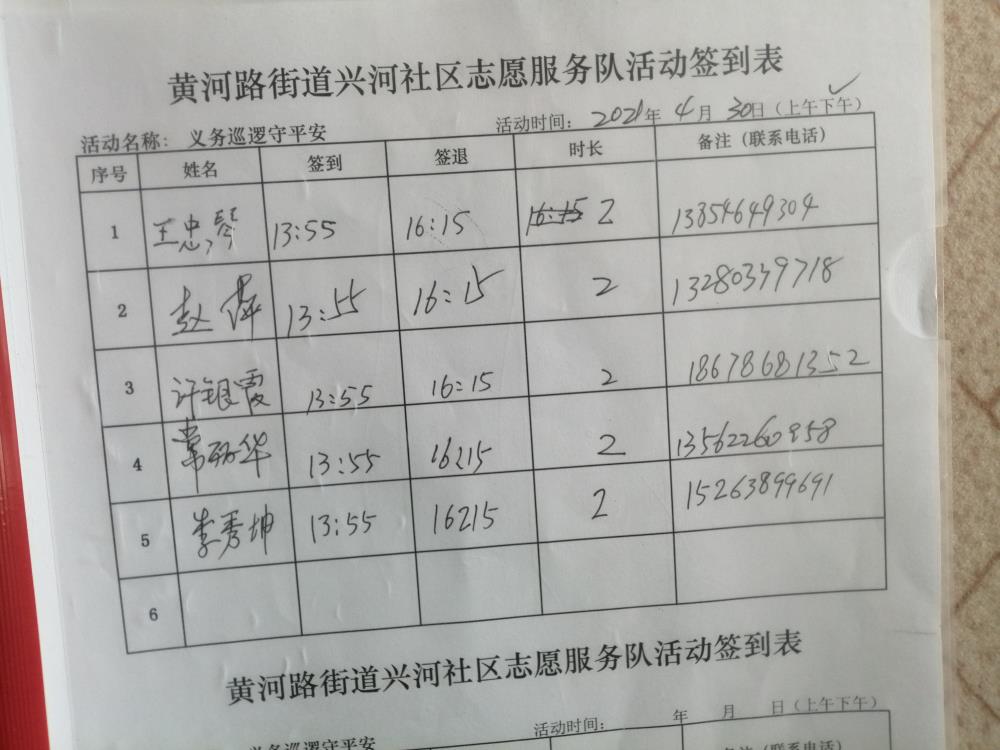 黄河路街道兴河社区志愿服务队活动签到表
活动名称：义务巡逻守平安 活动时间：2021年4月30日（上午下午）✓
序号 姓名 签到 签退 时长 备注（联系电话）
1 王忠琴 13:55 16:15 16:15 2 13854649304
2 赵萍 13:55 16:15 2 13280359718
3 许银霞 13:55 16:15 2 18678681352
4 常丽华 13:55 16215 2 13562260958
5 李秀坤 13:55 16215 2 15263899691
6
黄河路街道兴河社区志愿服务队活动签到表
义务巡逻守平安 活动时间： 年 月 日（上午下午）
备注（联系电话）